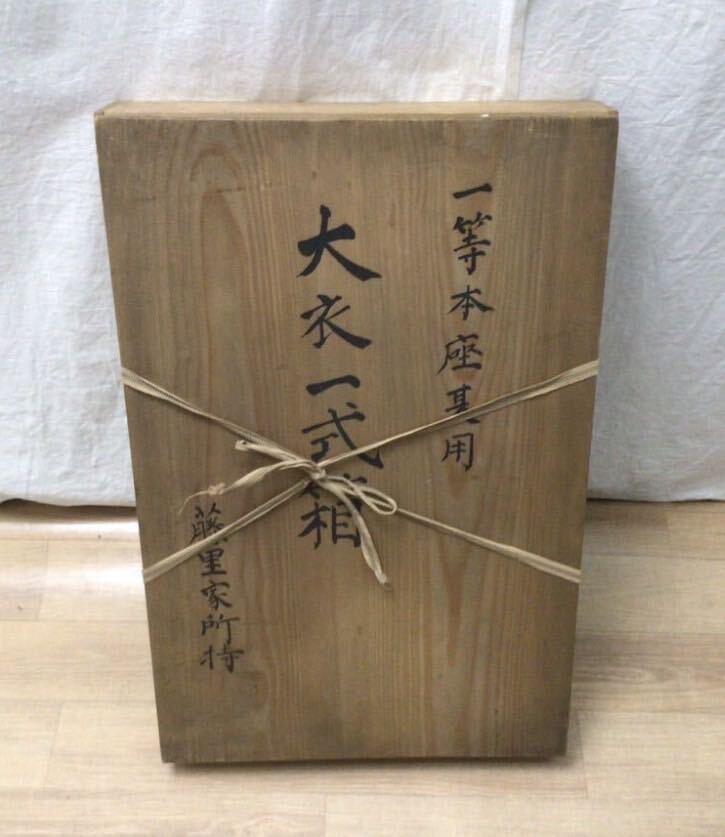 一等本座其用
大衣一式箱
藤里家所持